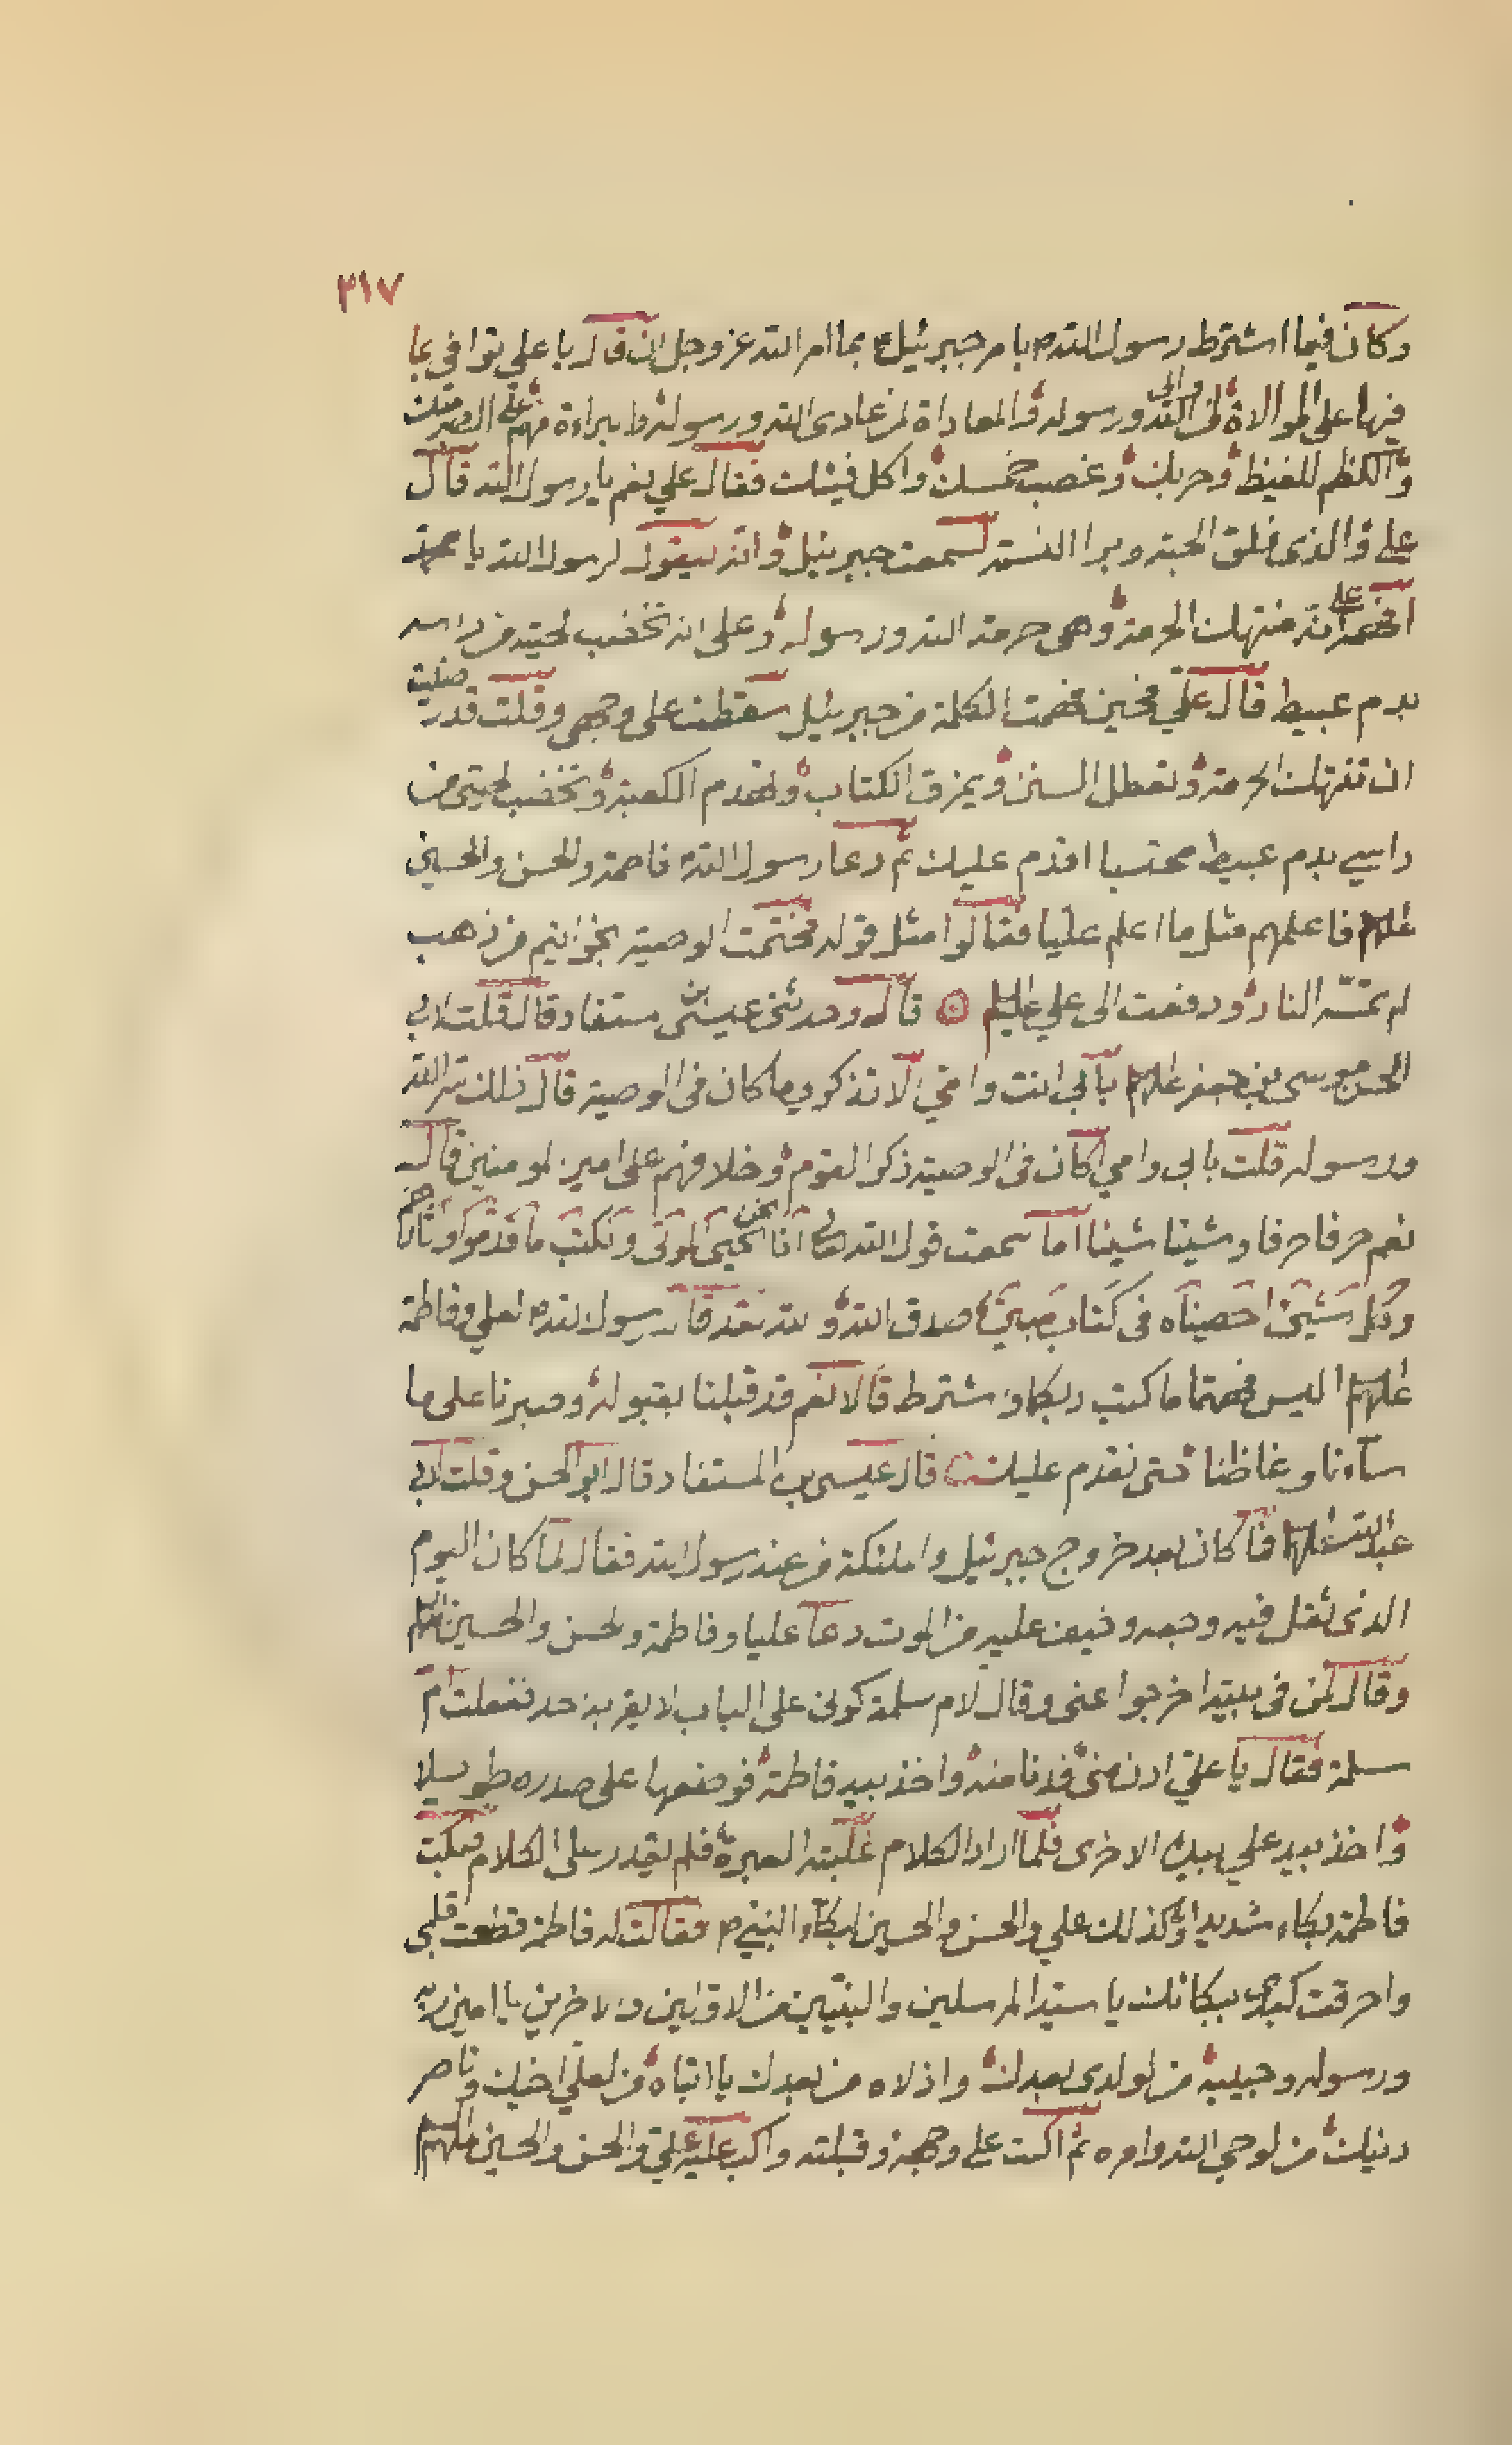 ٣١٧
وكان فيما اشترط رسول الله ص بامر جبرئيل ع بما امر الله عز وجل ان قال يا علي توافي بما
فيها على الموالاة لمن والى الله ورسوله والمعاداة لمن عادى الله ورسوله والبراءة منهم على الصبر منك
والكظم للغيظ وحربك وغصب خمسك واكل فيئك فقال علي نعم يا رسول الله قال
علي والذي فلق الحبة وبرا النسمة لسمعت جبرئيل وانه ليقول لرسول الله يا محمد
انه منتهك الحرمة وهي حرمة الله ورسوله وعلى انه تخضب لحيته من راسه
بدم عبيط قال علي فحين فهمت الكلمة من جبرئيل سقطت على وجهي وقلت قد رضيت
ان تنتهك الحرمة وتعطل السنن ويمزق الكتاب وتهدم الكعبة وتخضب لحيتي من
راسي بدم عبيط محتسبا اقدم عليك ثم دعا رسول الله ص فاطمة والحسن والحسين
عليهم فاعلمهم مثل ما اعلم عليا فقالوا مثل قوله فختمت الوصية بخواتيم من ذهب
لم تمسه النار ودفعت الى علي عليه السلم قال وحدثني عيسى بن مستفاد قال قلت لابي
الحسن موسى بن جعفر عليهم بابي انت وامي الا تذكر ما كان في الوصية قال ذلك سر الله
ورسوله قلت بابي وامي اكان في الوصية ذكر القوم وخلافهم على امير المومنين قال
نعم حرفا حرفا وشيئا شيئا اما سمعت قول الله تعالى انا نحن نحيي الموتى ونكتب ما قدموا وآثارهم
وكل شيئ احصيناه في كتاب مبين صدق الله والله لقد قال رسول الله ص لعلي وفاطمة
عليهم اليس فهمتما ما كتب ربكما وشترط قالا نعم قد قبلنا بقبوله وصبرنا على ما
ساءنا وغاظنا حتى نقدم عليك قال عيسى بن المستفاد قال ابو الحسن وقلت لابي
عبد الله عليهم فما كان بعد خروج جبرئيل والملئكة من عند رسول الله فقال لما كان اليوم
الذي ثقل فيه وجعه وخيف عليه من الموت دعا عليا وفاطمة ولحسن والحسين عليهم السلم
وقال لمن في بيته اخرجوا عني وقال لام سلمة كوني على الباب لا يقربه احد ففعلت ام
سلمة فقال يا علي ادن مني فدنا منه واخذ بيد فاطمة فوضعها على صدره طويلا
واخذ بيد علي بيده الاخرى فلما اراد الكلام غلبته العبرة فلم يقدر على الكلام فبكت
فاطمة بكاء شديدا وكذلك علي والحسن والحسين لبكاء النبي ص فقالت له فاطمة قطعت قلبي
واحرقت كبدي ببكائك يا سيد المرسلين والنبيين من الاولين والاخرين يا امين ربه
ورسوله وحبيبه من لولدي بعدك واذلاه من بعدك يا ابتاه من لعلي اخيك وناصر
دينك من لوحي الله وامره ثم اكبت على وجهه وقبلته واكب عليه علي والحسن والحسين عليهم السلم